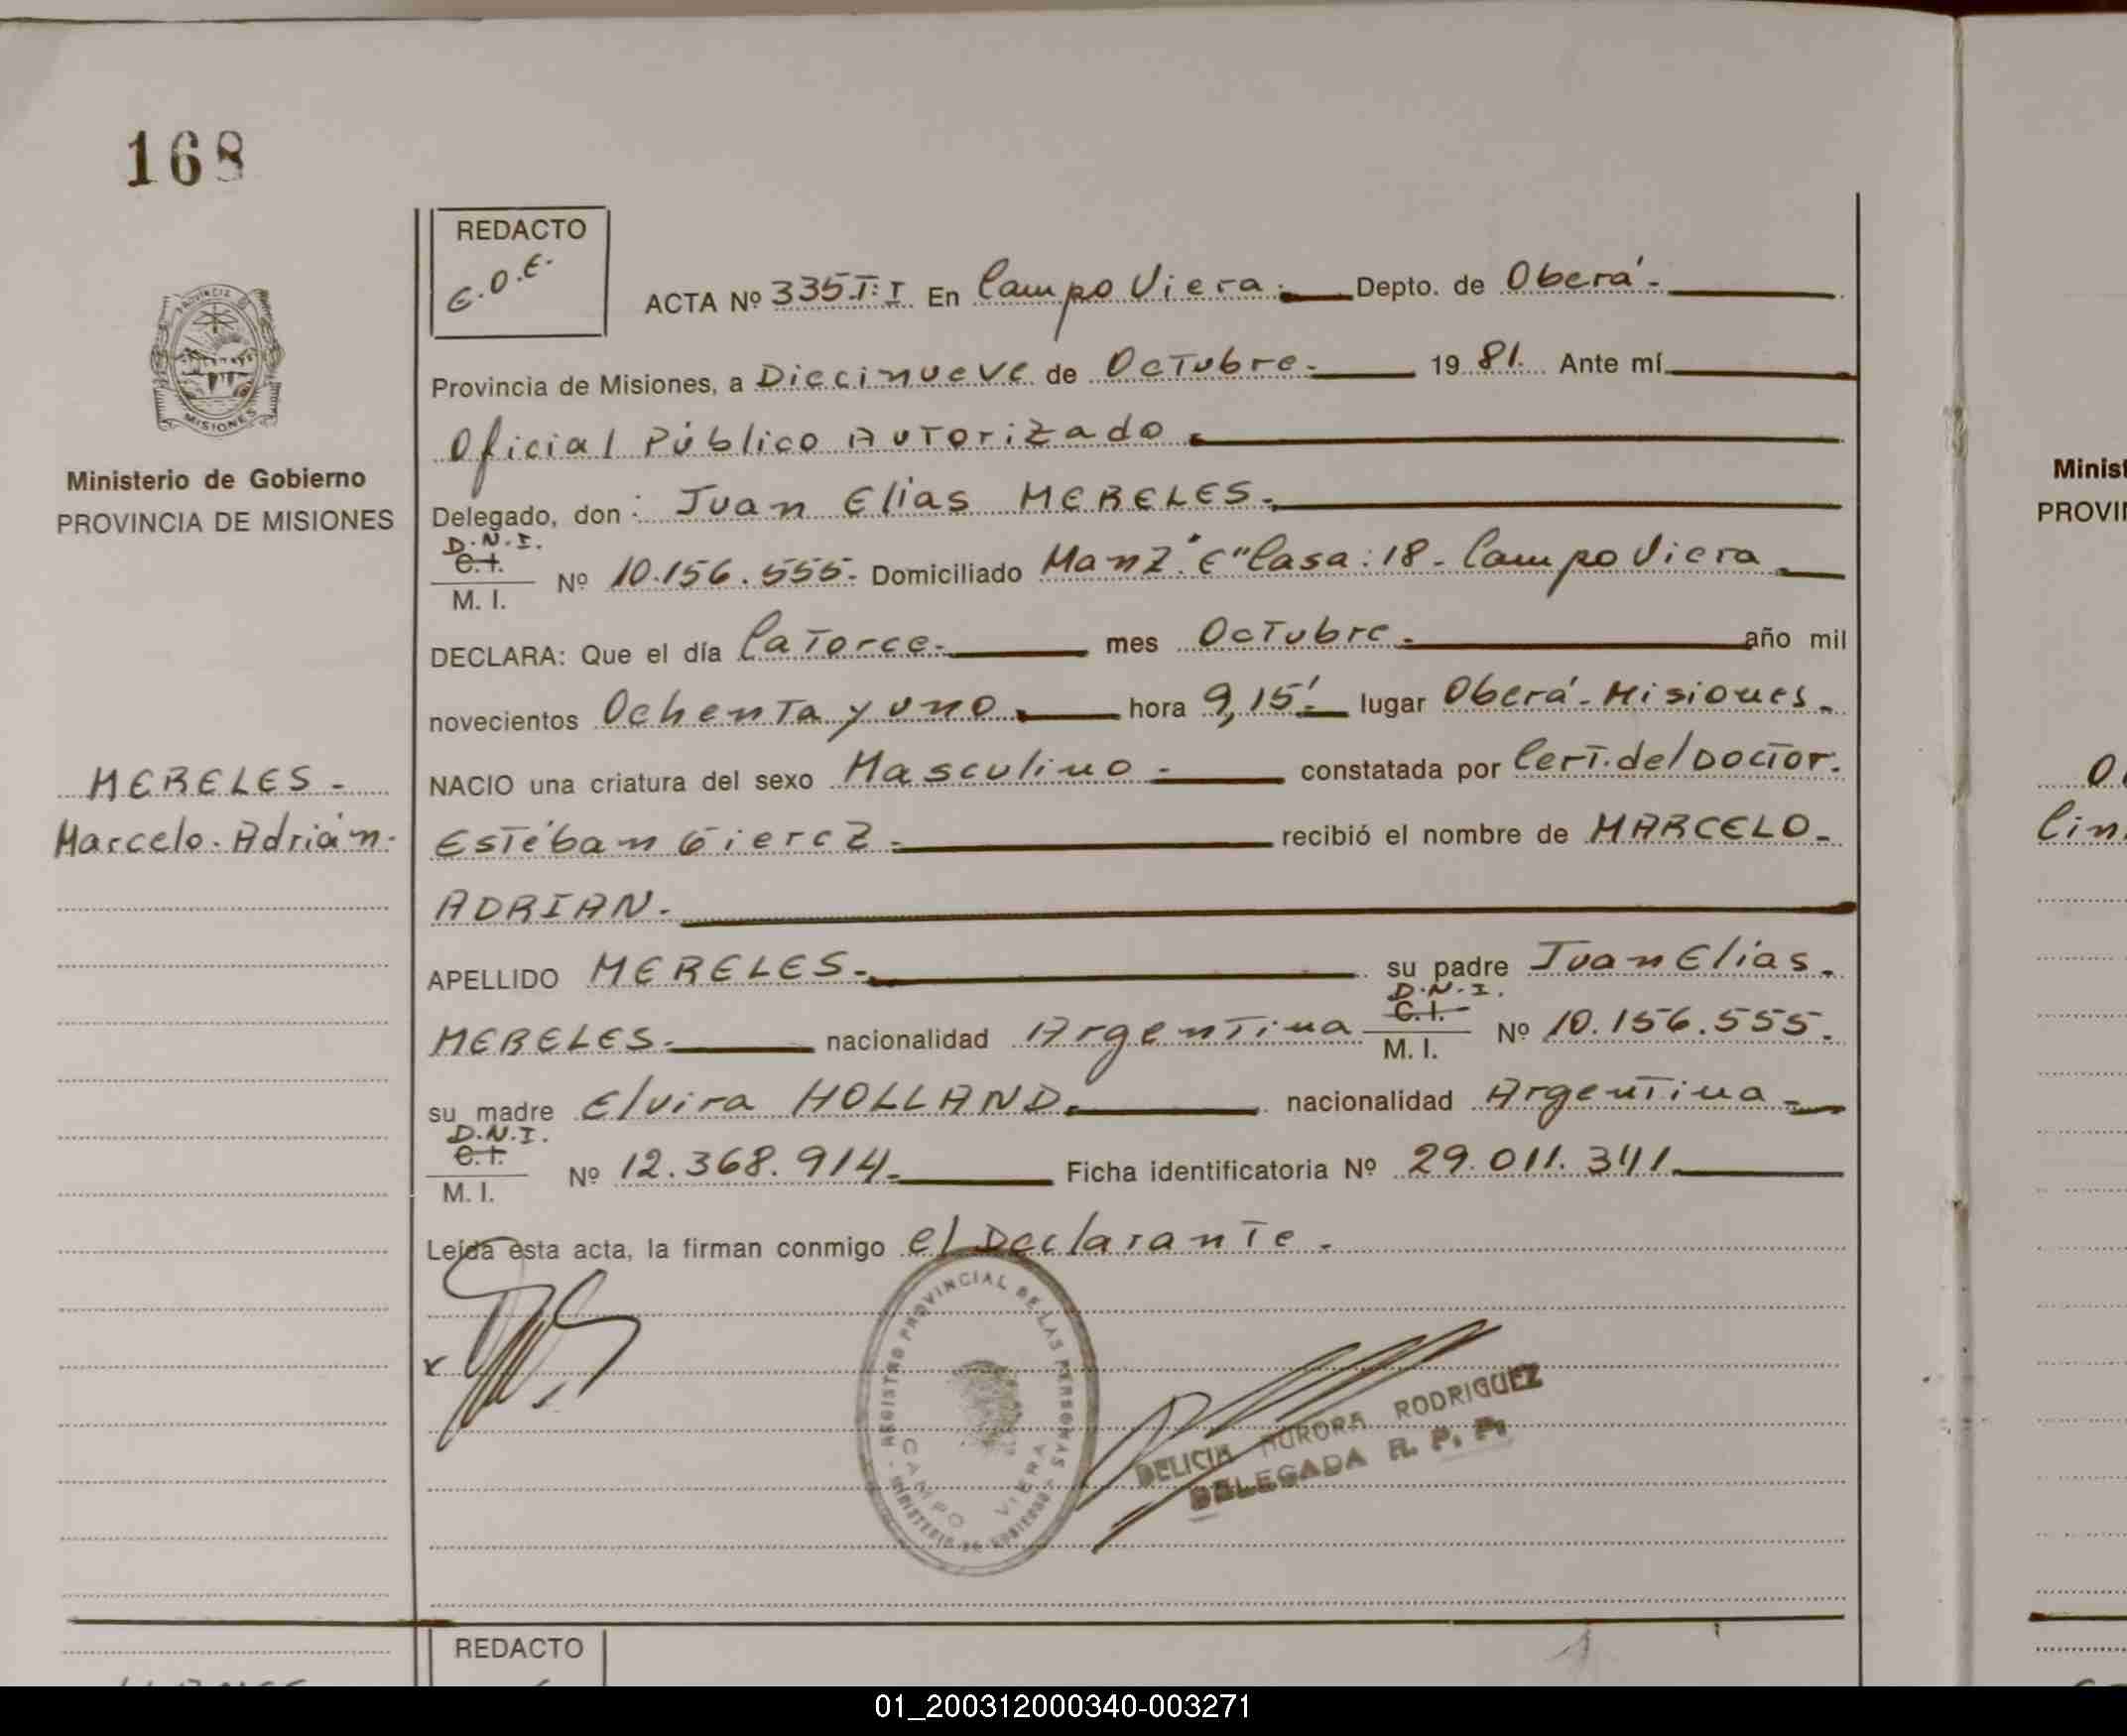 168
REDACTO
E.O.E.
ACTA Nº 335.T:I En Campo Viera.- Depto. de Oberá.-
Provincia de Misiones, a Diecinueve de Octubre.- 1981. Ante mí
Oficial Público Autorizado.
PROVINCIA
MISIONES
Ministerio de Gobierno
PROVINCIA DE MISIONES
Delegado, don: Juan Elias MERELES.-
D.N.I.
C.I.
M. I.
Nº 10.156.555.- Domiciliado Manz."E" Casa: 18 - Campo Viera.
DECLARA: Que el día Catorce.- mes Octubre.- año mil
novecientos Ochenta y uno.- hora 9,15'.- lugar Oberá - Misiones.-
NACIO una criatura del sexo Masculino.- constatada por Cert. del Doctor.
MERELES.-
Marcelo. Adrián.
Estéban Giercz.- recibió el nombre de MARCELO.-
ADRIAN.-
APELLIDO MERELES.- su padre Juan Elias.
MERELES.- nacionalidad Argentina D.N.I.
C.I.
M. I.
Nº 10.156.555.
su madre Elvira HOLLAND. nacionalidad Argentina.-
D.N.I.
C.I.
M. I.
Nº 12.368.914.- Ficha identificatoria Nº 29.011.341.
Leída esta acta, la firman conmigo el Declarante.-
REGISTRO PROVINCIAL DE LAS PERSONAS
CAMPO VIERA
MINISTERIO DE GOBIERNO
DELICIA AURORA RODRIGUEZ
DELEGADA R. P. P.
REDACTO
Minist
PROVIN
01_200312000340-003271